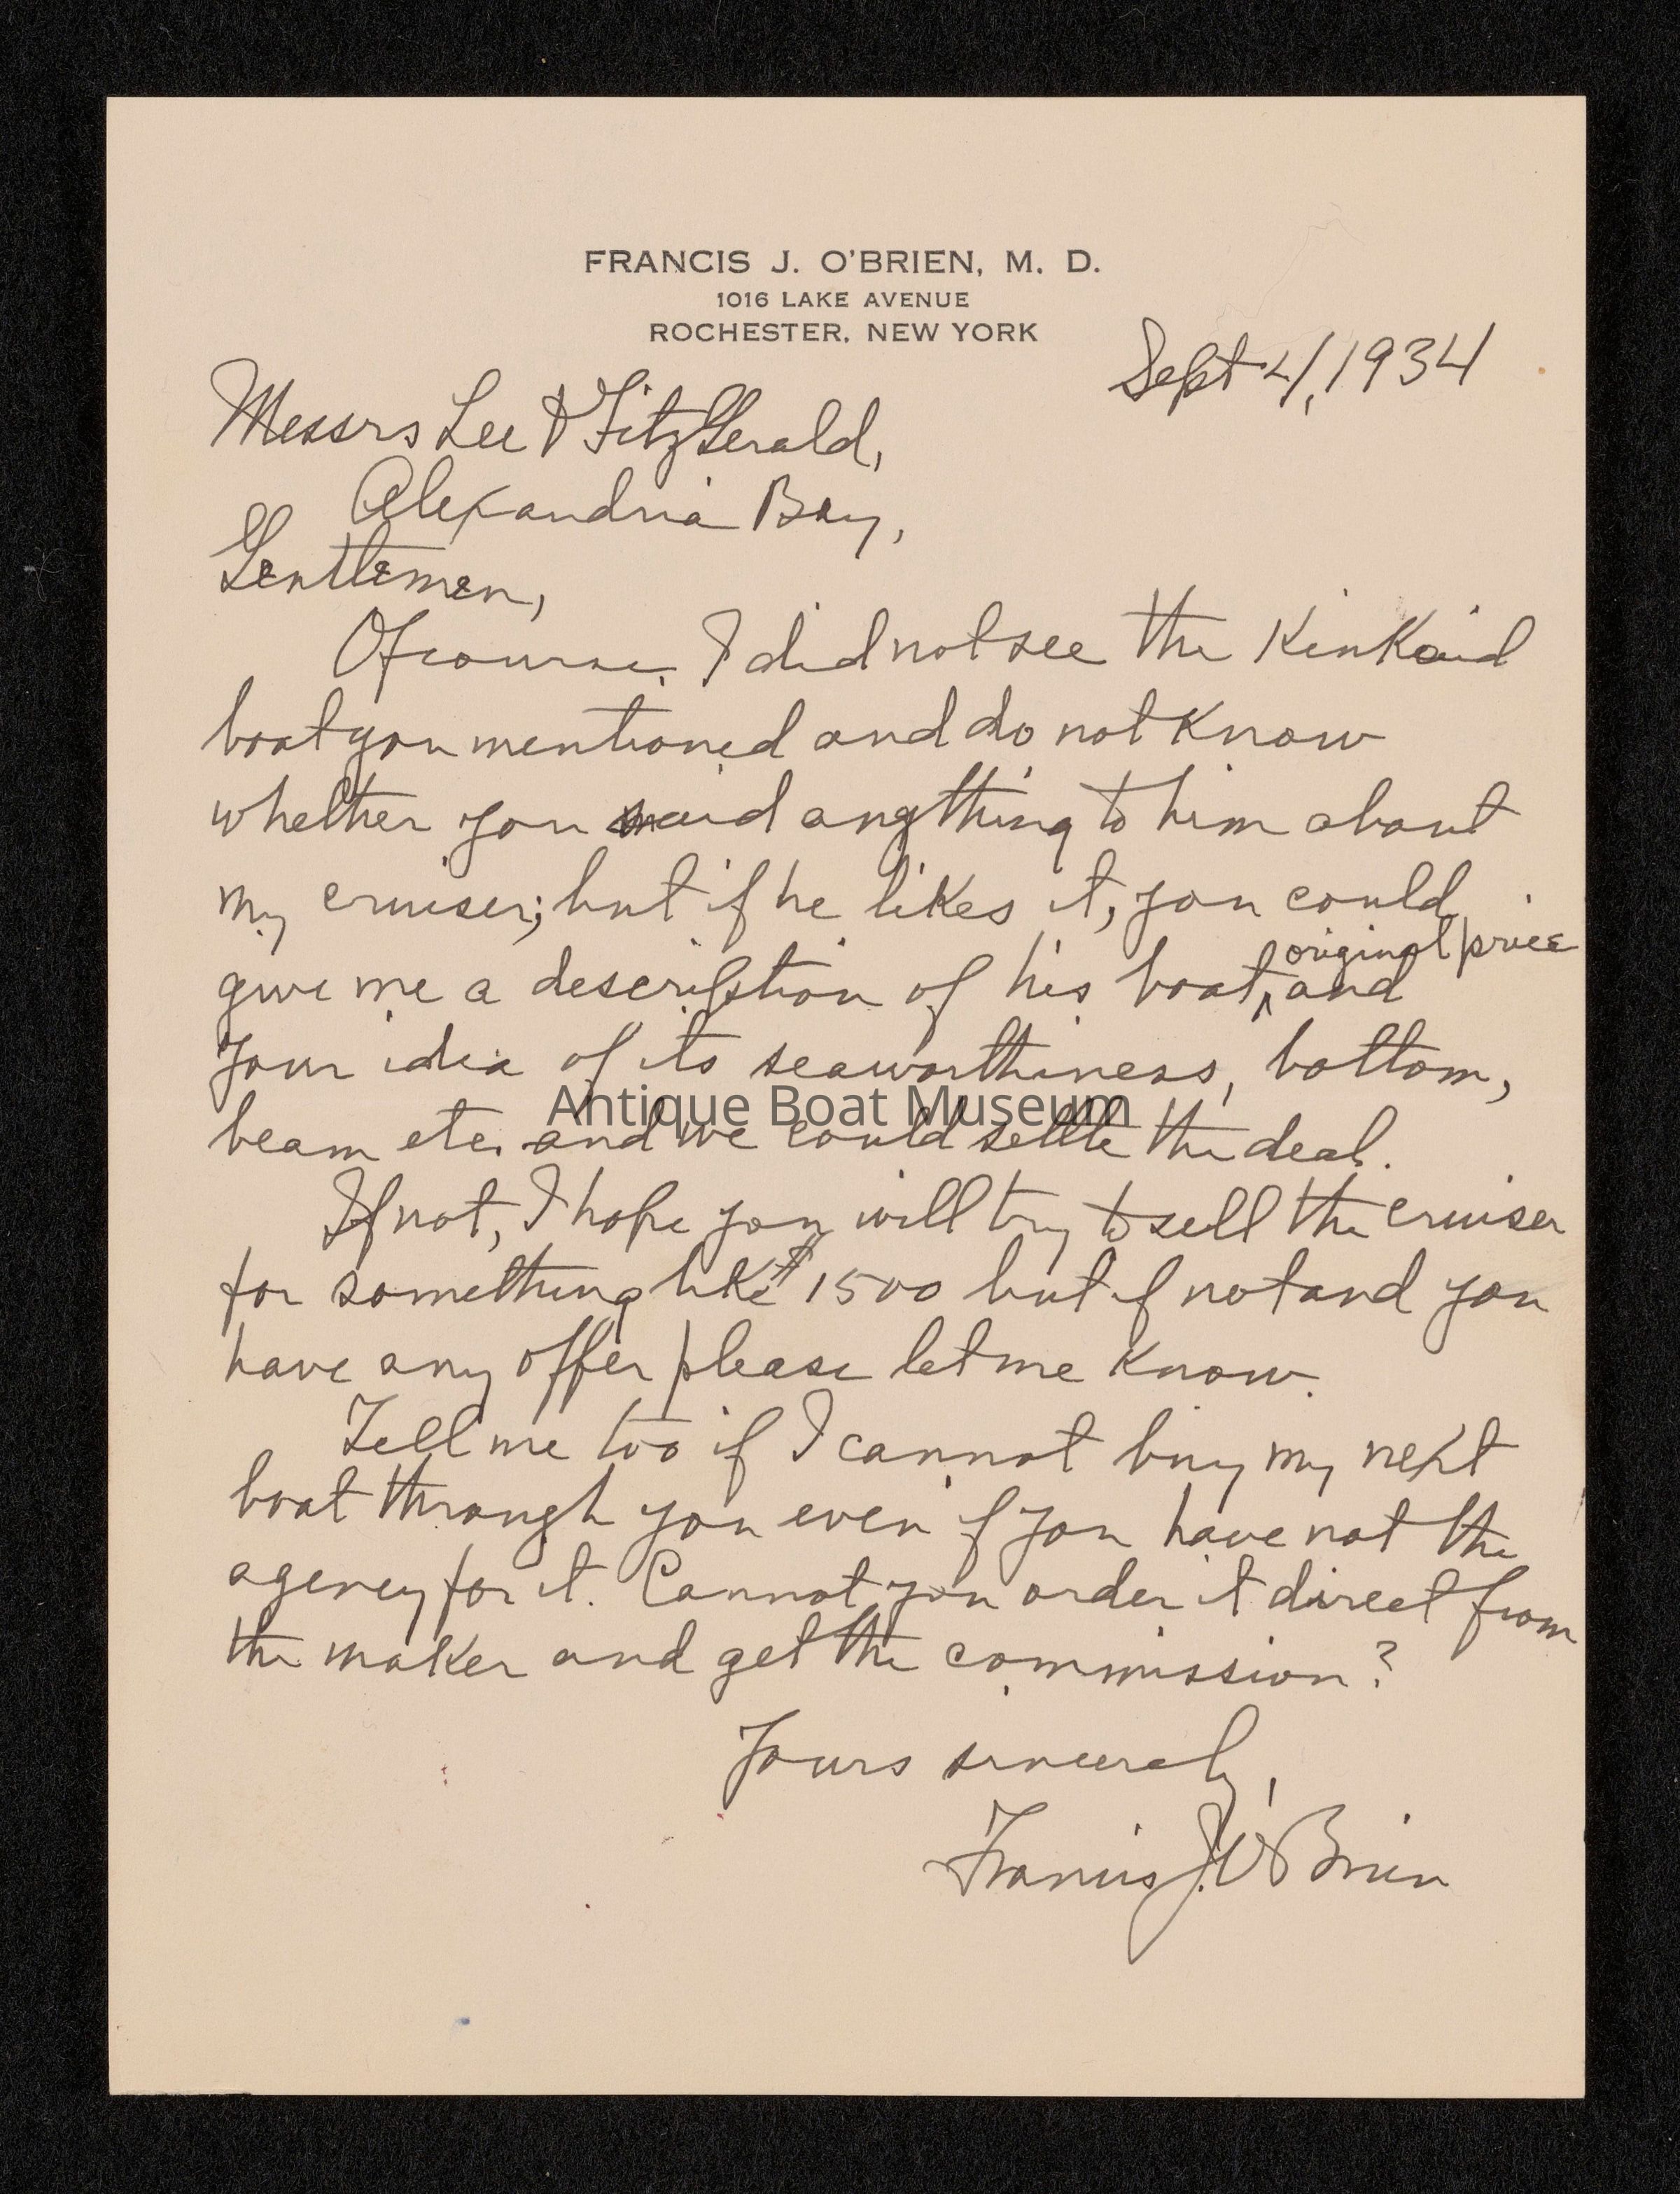 FRANCIS J. O'BRIEN, M. D.
1016 LAKE AVENUE
ROCHESTER, NEW YORK
Sept 4, 1934
Messrs Lee & FitzGerald,
Alexandria Bay,
Gentlemen,
Of course, I did not see the KinKaid
boat you mentioned and do not know
whether you said anything to him about
my cruiser; but if he likes it, you could
original price
give me a description of his boat, ^ and
your idea of its seaworthiness, bottom,
Antique Boat Museum
beam etc. and we could settle the deal.
If not, I hope you will try to sell the cruiser
for something like $1500 but if not and you
have any offer please let me know.
Tell me too if I cannot buy my next
boat through you even if you have not the
agency for it. Cannot you order it direct from
the maker and get the commission?
Yours sincerely,
Francis J. O'Brien